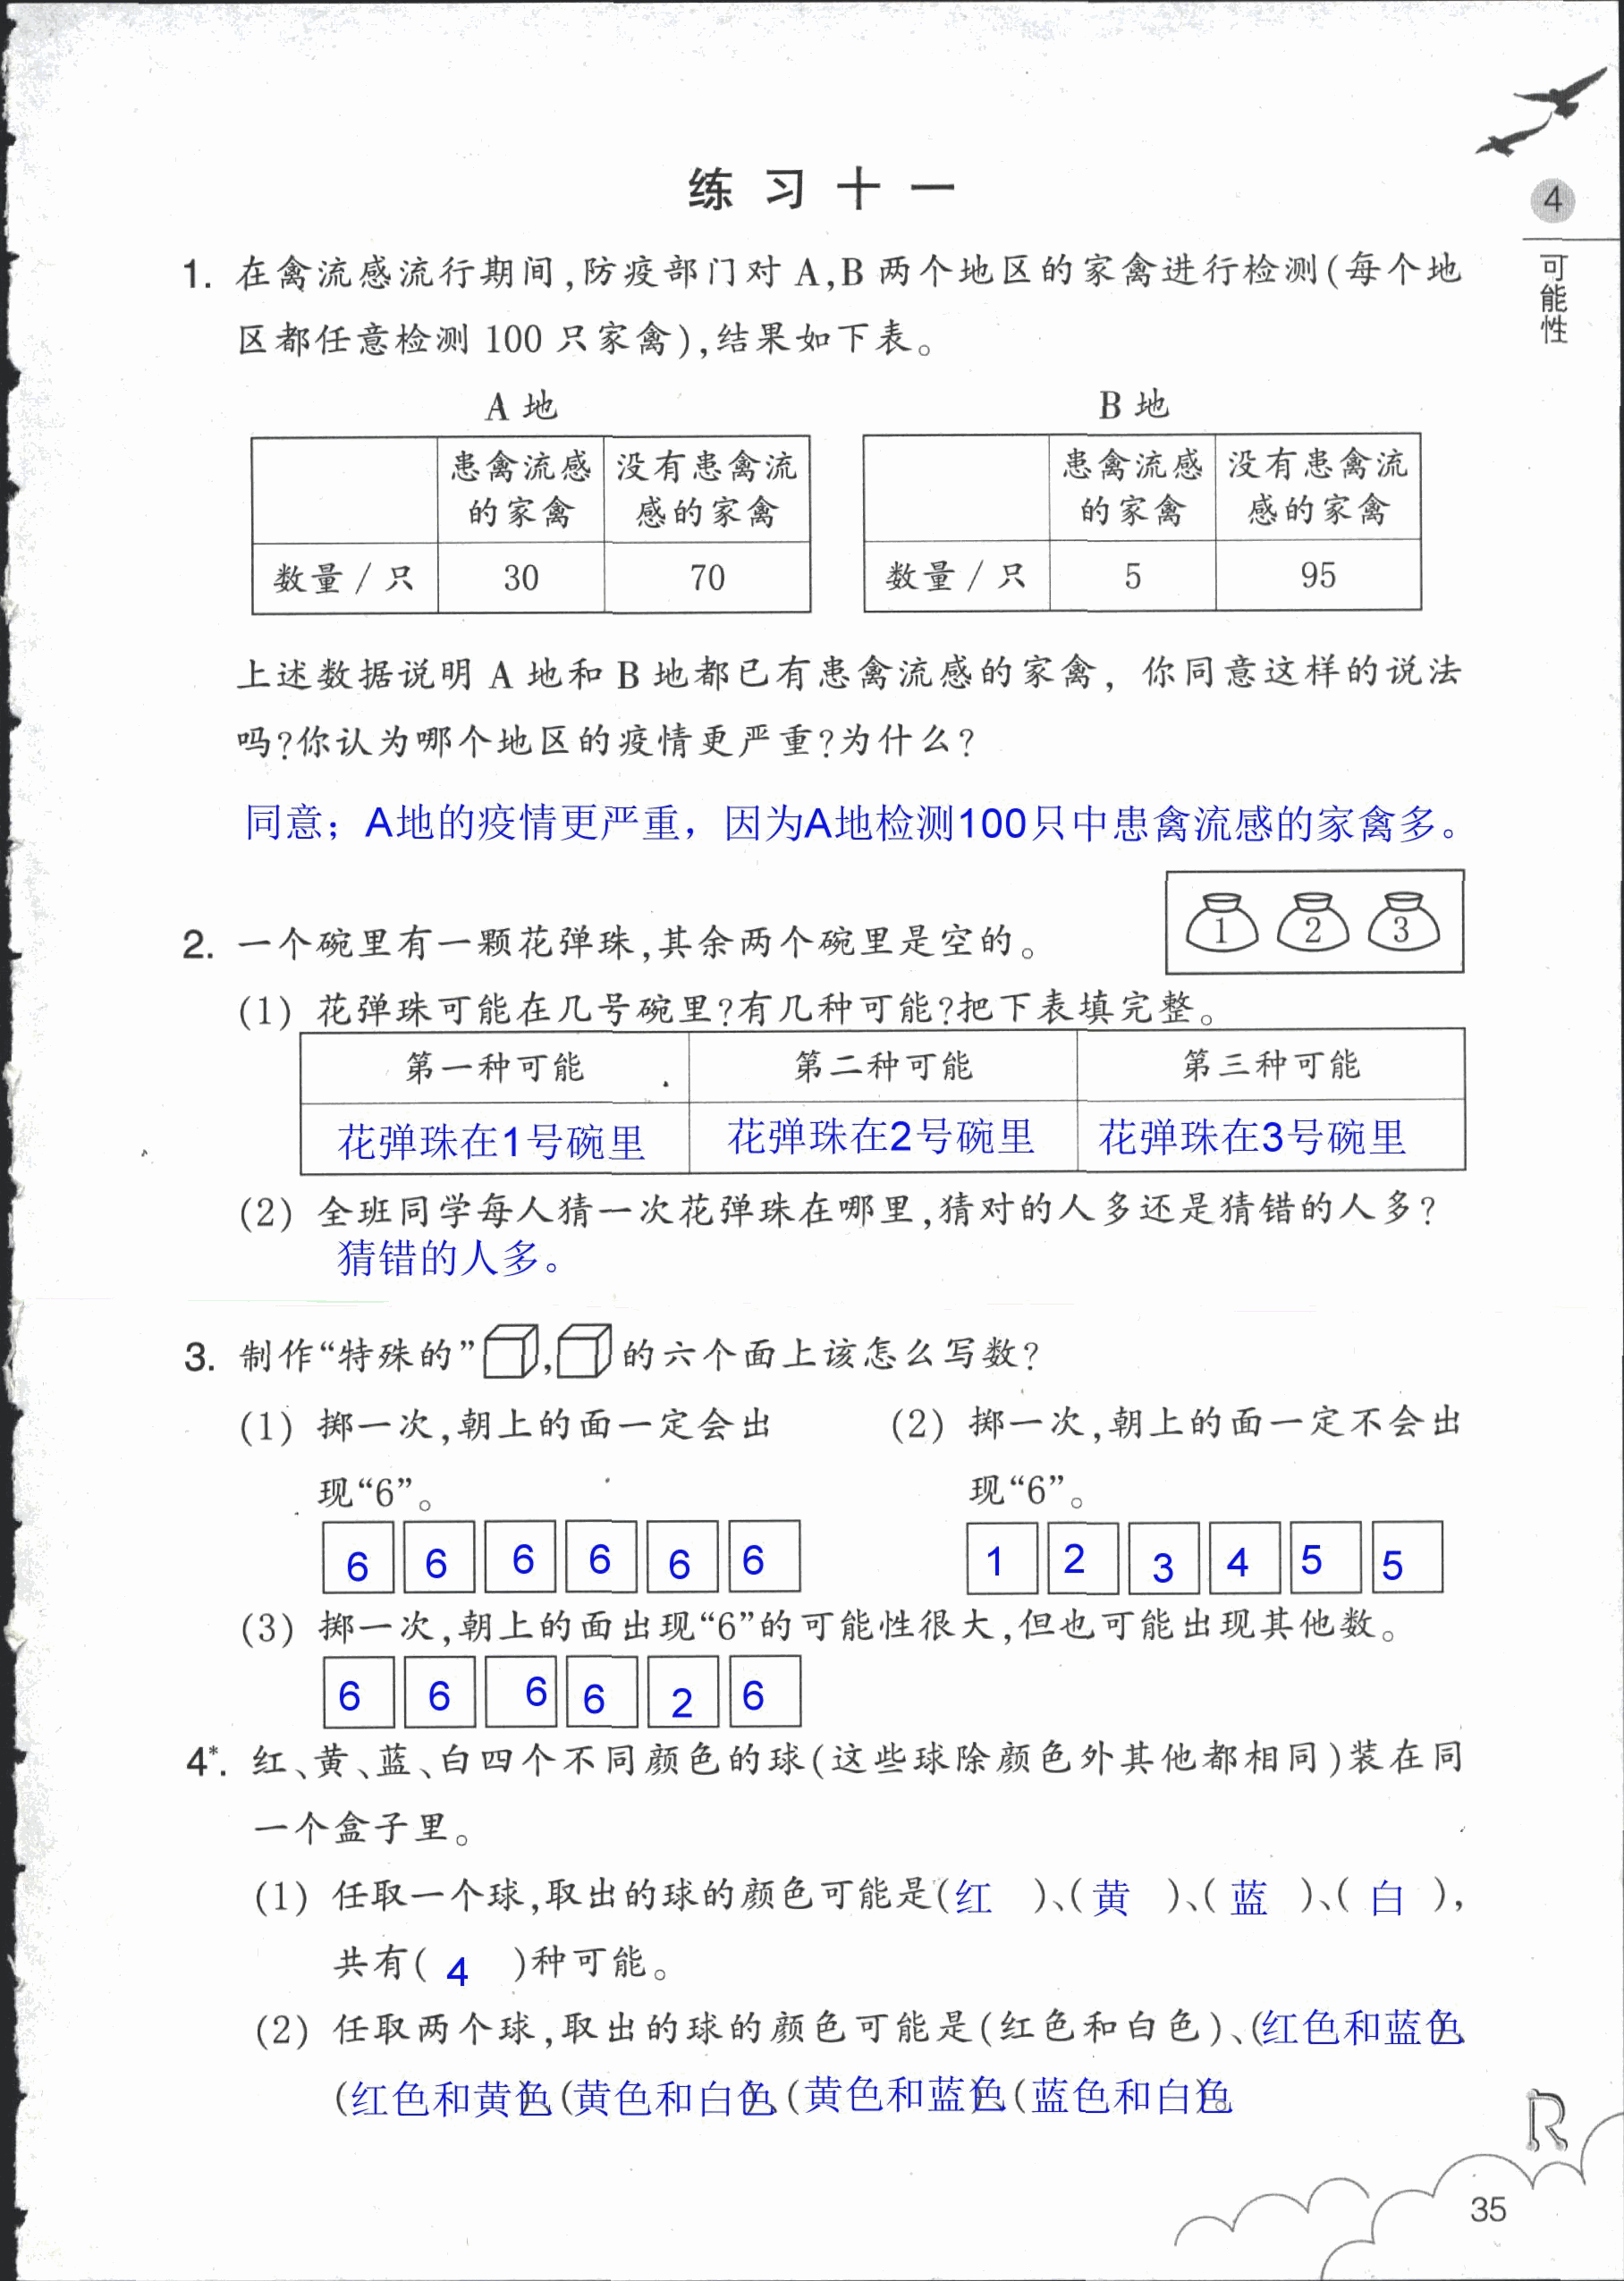 4
可能性
练习十一
1. 在禽流感流行期间,防疫部门对 A,B 两个地区的家禽进行检测(每个地
区都任意检测 100 只家禽),结果如下表。
A 地
患禽流感的家禽 没有患禽流感的家禽
数量/只 30 70
B 地
患禽流感的家禽 没有患禽流感的家禽
数量/只 5 95
上述数据说明 A 地和 B 地都已有患禽流感的家禽，你同意这样的说法
吗?你认为哪个地区的疫情更严重?为什么?
同意；A地的疫情更严重，因为A地检测100只中患禽流感的家禽多。
1 2 3
2. 一个碗里有一颗花弹珠,其余两个碗里是空的。
(1) 花弹珠可能在几号碗里?有几种可能?把下表填完整。
第一种可能 第二种可能 第三种可能
花弹珠在1号碗里 花弹珠在2号碗里 花弹珠在3号碗里
(2) 全班同学每人猜一次花弹珠在哪里,猜对的人多还是猜错的人多?
猜错的人多。
3. 制作“特殊的” , 的六个面上该怎么写数?
(1) 掷一次,朝上的面一定会出
现“6”。
6 6 6 6 6 6
(2) 掷一次,朝上的面一定不会出
现“6”。
1 2 3 4 5 5
(3) 掷一次,朝上的面出现“6”的可能性很大,但也可能出现其他数。
6 6 6 6 2 6
4*. 红、黄、蓝、白四个不同颜色的球(这些球除颜色外其他都相同)装在同
一个盒子里。
(1) 任取一个球,取出的球的颜色可能是(红 )、(黄 )、( 蓝 )、( 白 ),
共有( 4 )种可能。
(2) 任取两个球,取出的球的颜色可能是(红色和白色)、(红色和蓝色)、
(红色和黄色)、(黄色和白色)、(黄色和蓝色)、(蓝色和白色)。
R
35